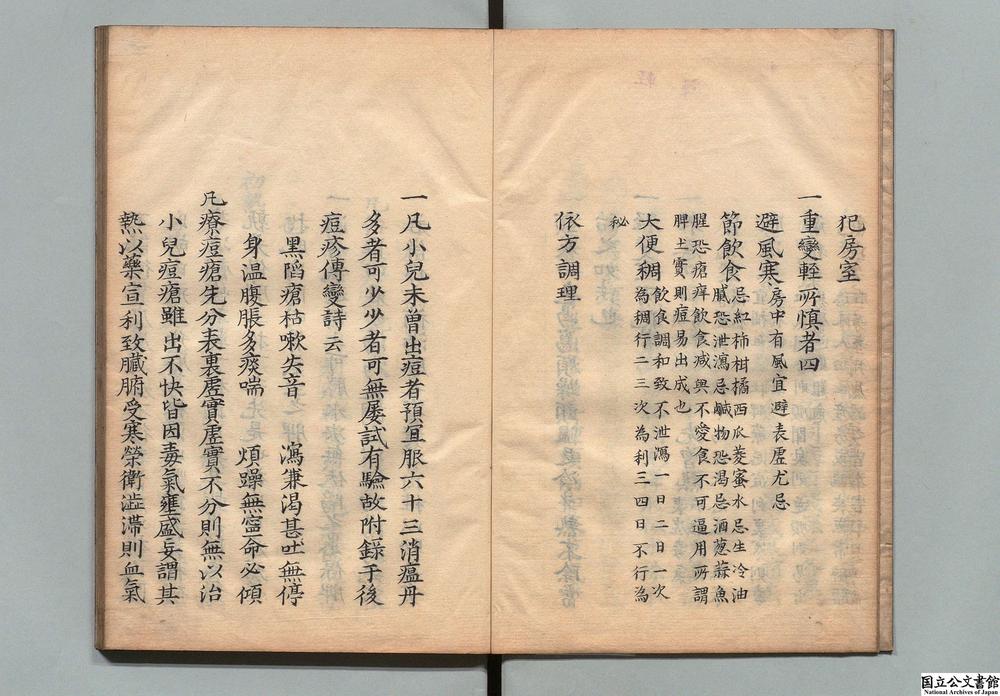 犯房室
一重變輊所慎者四
避風寒房中有風宜避表虛尤忌
節飲食忌紅柿柑橘西瓜菱蜜水忌生冷油
膩恐泄瀉忌鹹物恐渴忌酒葱蒜魚
腥恐瘡痒飲食减與不愛食不可逼用所謂
脾土實則痘易出成也
大便稠飲食調和致不泄瀉一日二日一次
為稠行二三次為利三四日不行為
秘
依方調理
一凡小兒未曾出痘者預冝服六十三消瘟丹
多者可少少者可無屡試有驗故附錄于後
痘疹傳變詩云
黑䧟瘡枯嗽失音 瀉兼渴甚吐無停
身温腹脹多痰喘 煩躁無寍命必傾
凡療痘瘡先分表裏虛實虛實不分則無以治
小兒痘瘡雖出不快皆因毒氣壅盛妄謂其
熱以藥宣利致臟腑受寒榮衛澁滯則血氣
国立公文書館
National Archives of Japan